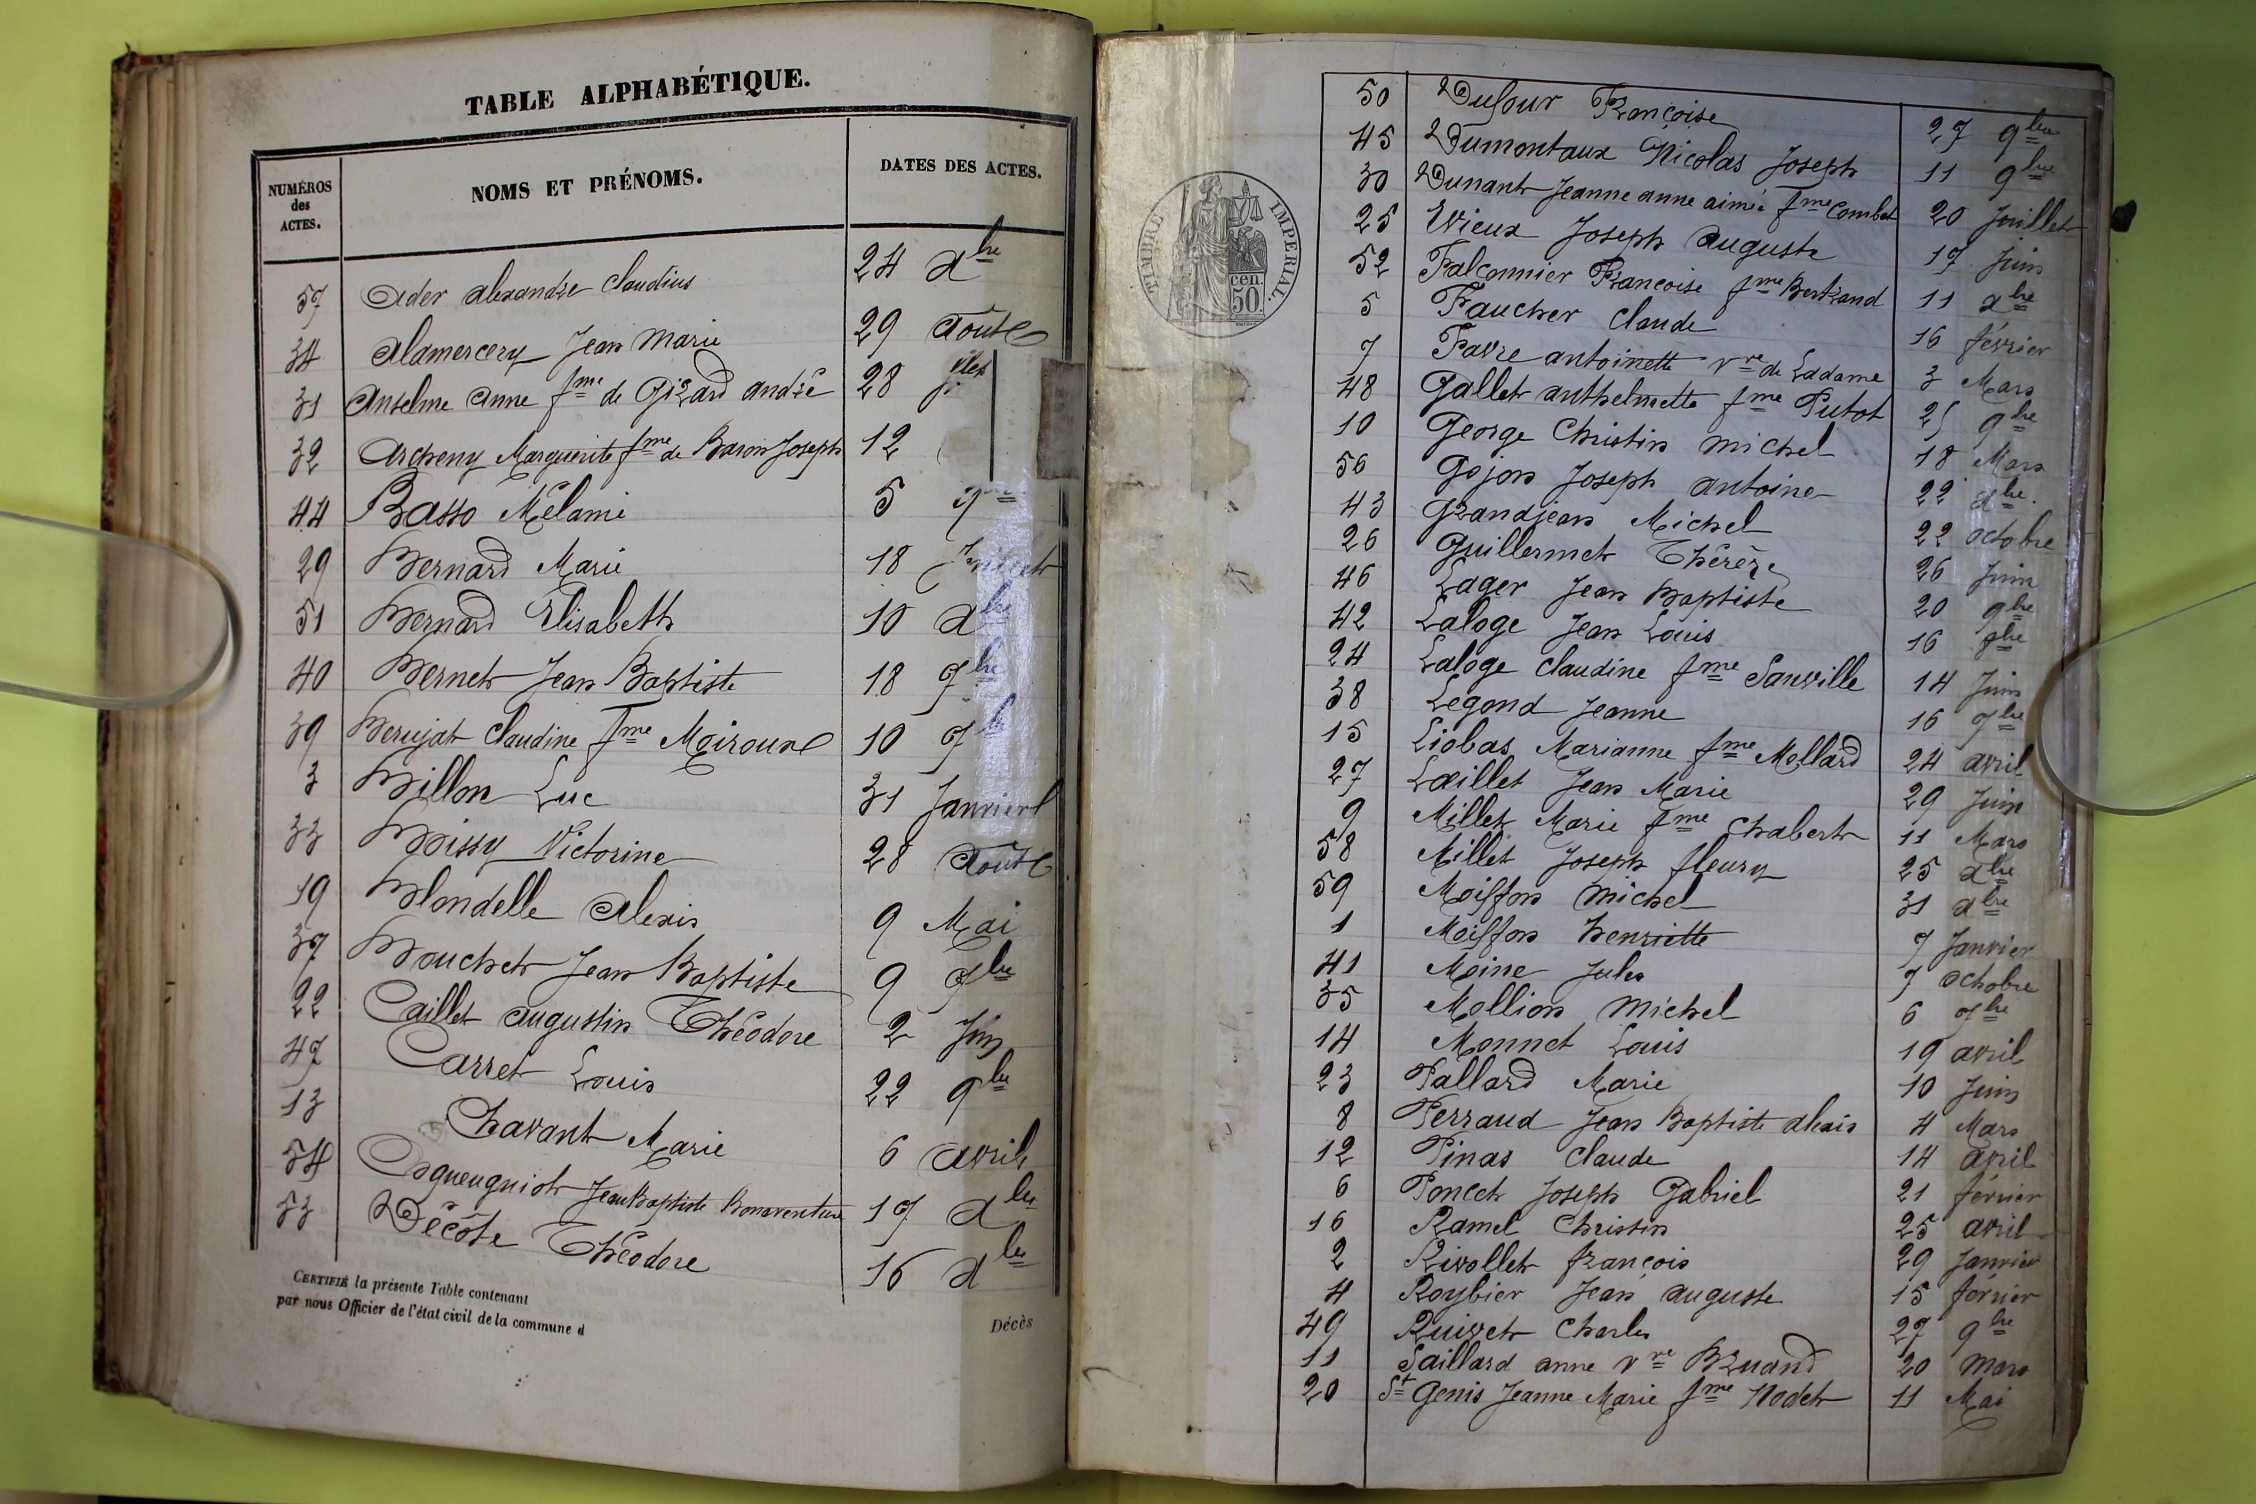 TABLE ALPHABÉTIQUE.
NUMÉROS des ACTES. NOMS ET PRÉNOMS. DATES DES ACTES.
57 Ader Alexandre Claudius 24 Xbre
34 Alamercery Jean Marie 29 Août
31 Anselme Anne fme de Girard André 28 jllet
32 Archeny Marguerite fme de Baron Joseph 12
44 Basso Mélanie 5 9bre
29 Bernard Marie 18 Juillet
51 Bernard Elisabeth 10 Xbre
40 Bernet Jean Baptiste 18 7bre
39 Berujat Claudine fme Moiroux 10 7b
3 Billon Luc 31 Janvier
33 Boissy Victorine 28 Août
19 Blondelle Alexis 9 Mai
37 Bouchet Jean Baptiste 9 7bre
22 Caillet Augustin Théodore 2 Juin
47 Carret Louis 22 9bre
13 Chavant Marie 6 Avril
54 Cogueugniot Jean Baptiste Bonaventure 17 Xbre
53 Décôte Théodore 16 Xbre
CERTIFIÉ la présente Table contenant Décès
par nous Officier de l'état civil de la commune d
TIMBRE IMPÉRIAL.
50 cen.
50 Dufour Françoise 27 9bre
45 Dumontaux Nicolas Joseph 11 9bre
30 Dunant Jeanne Anne Aimée fme Combet 20 Juillet
25 Evieux Joseph Auguste 17 Juin
52 Falconnier Françoise fme Bertrand 11 Xbre
5 Faucher Claude 16 février
7 Favre Antoinette vve de Ladame 3 Mars
48 Gallet Anthelmette fme Putot 25 9bre
10 George Christin Michel 18 Mars
56 Gojon Joseph Antoine 22 Xbre.
43 Grandjean Michel 22 octobre
26 Guillermet Thérèze 26 Juin
46 Lager Jean Baptiste 20 9bre
42 Laloge Jean Louis 16 8bre
24 Laloge Claudine fme Sanville 14 Juin
38 Legond Jeanne 16 7bre
15 Liobas Marianne fme Mollard 24 avril
27 Lœillet Jean Marie 29 Juin
9 Millet Marie fme Chabert 11 Mars
58 Millet Joseph fleury 25 Xbre
59 Moiffon Michel 31 Xbre
1 Moiffon henriette 7 Janvier
41 Moine Jules 7 octobre
35 Mollion Michel 6 7bre
14 Monnet Louis 19 avril
23 Pallard Marie 10 Juin
8 Perraud Jean Baptiste Alexis 4 Mars
12 Pinas Claude 14 avril
6 Poncet Joseph Gabriel 21 février
16 Ramel Christin 25 avril
2 Rivollet françois 29 Janvier
4 Roybier Jean Auguste 15 février
49 Ruivet Charles 27 9bre
11 Saillard Anne vve Bruand 20 Mars
20 St Genis Jeanne Marie fme Nodet 11 Mai